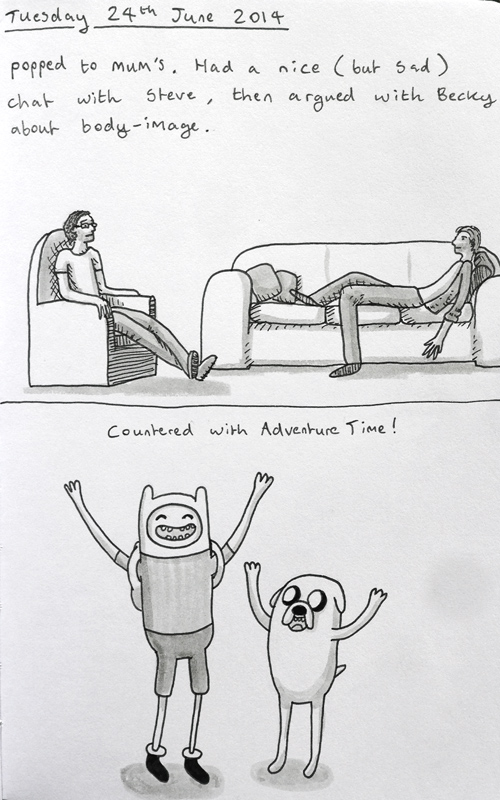 Tuesday 24th June 2014
popped to mum's. Had a nice (but sad)
chat with Steve, then argued with Becky
about body-image.
Countered with Adventure Time!